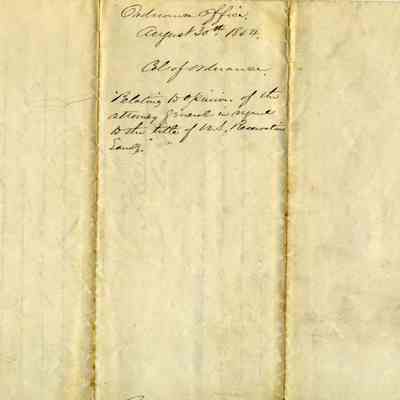 Ordnance Office,
August 30th 1864.
Col of Ordnance.
"Relating to opinion of the
attorney general in regard
to the title of U.S. Reservation
Lands."